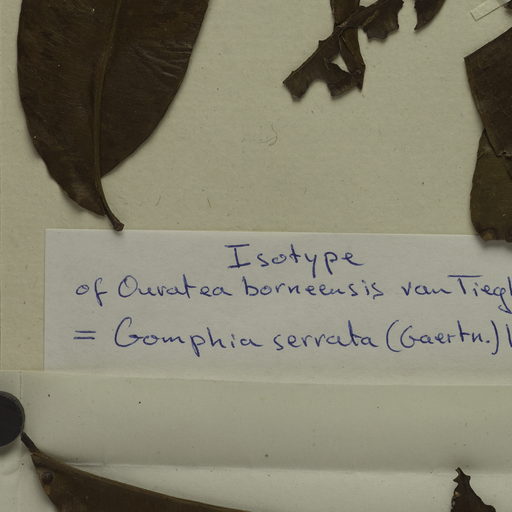 Isotype
of Ouratea borneensis van Tiegh
= Gomphia serrata (Gaertn.)